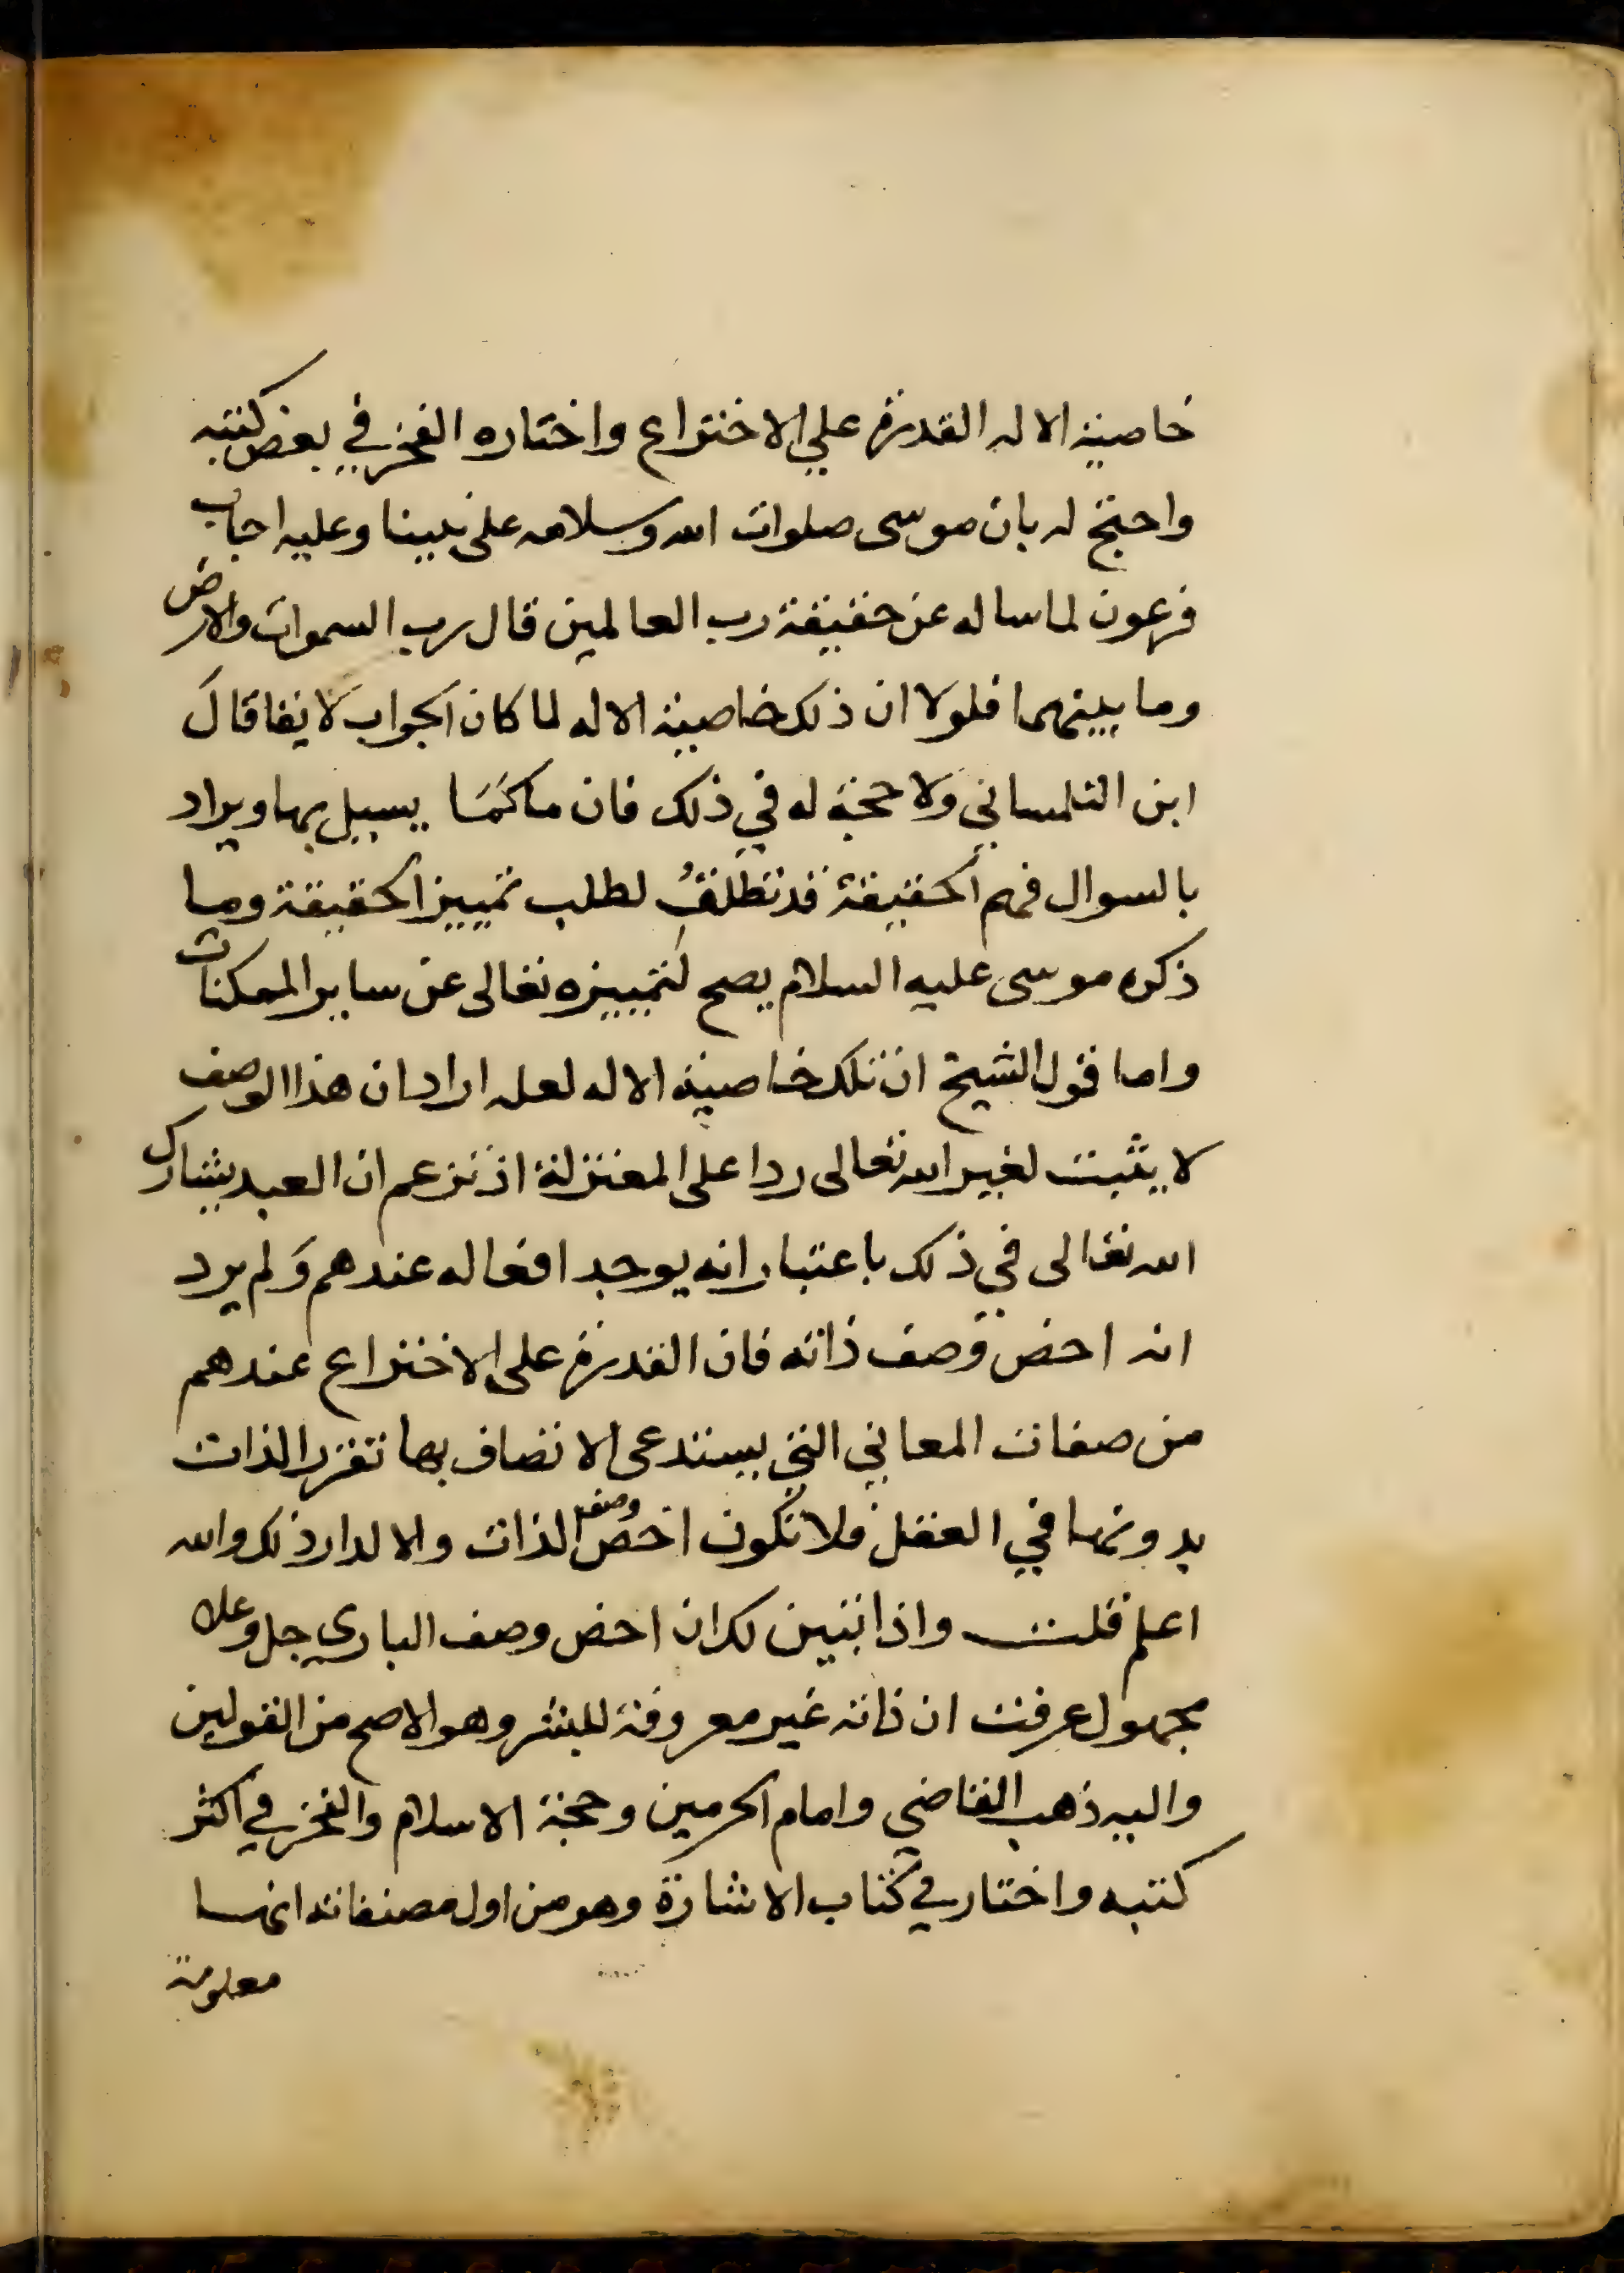 خاصية الاله القدرة علي الاختراع واختاره الفخر في بعض كتبه
واحتج له بان موسى صلوات الله وسلامه على نبينا وعليه اجاب
فرعون لما ساله عن حقيقة رب العالمين قال رب السموات والارض
وما بينهما فلولا ان ذلك خاصية الاله لما كان الجواب لايقا قال
ابن التلمساني ولا حجة له في ذلك فان ما كما يسيل بها ويراد
بالسوال فهم الحقيقة قد تطلق لطلب تمييز الحقيقة وما
ذكره موسى عليه السلام يصح لتمييزه تعالى عن ساير الممكنات
واما قول الشيخ ان تلك خاصية الاله لعله اراد ان هذا الوصف
لا يثبت لغير الله تعالى ردا على المعتزلة اذ تزعم ان العبد يشارك
الله تعالى في ذلك باعتبار انه يوجد افعاله عندهم ولم يرد
انه اخص وصف ذاته فان القدرة على الاختراع عندهم
من صفات المعاني التي يستدعى الاتصاف بها تقرر الذات
بدونها في العقل فلا تكون اخص وصف الذات والا لدار ذلك والله
اعلم قلت واذا تبين لك ان اخص وصف الباري جل وعلا
مجهول عرفت ان ذاته غير معروفة للبشر وهو الاصح من القولين
واليه ذهب القاضي وامام الحرمين وحجة الاسلام والفخر في اكثر
كتبه واختار في كتاب الاشارة وهو من اول مصنفاته انها
معلومة